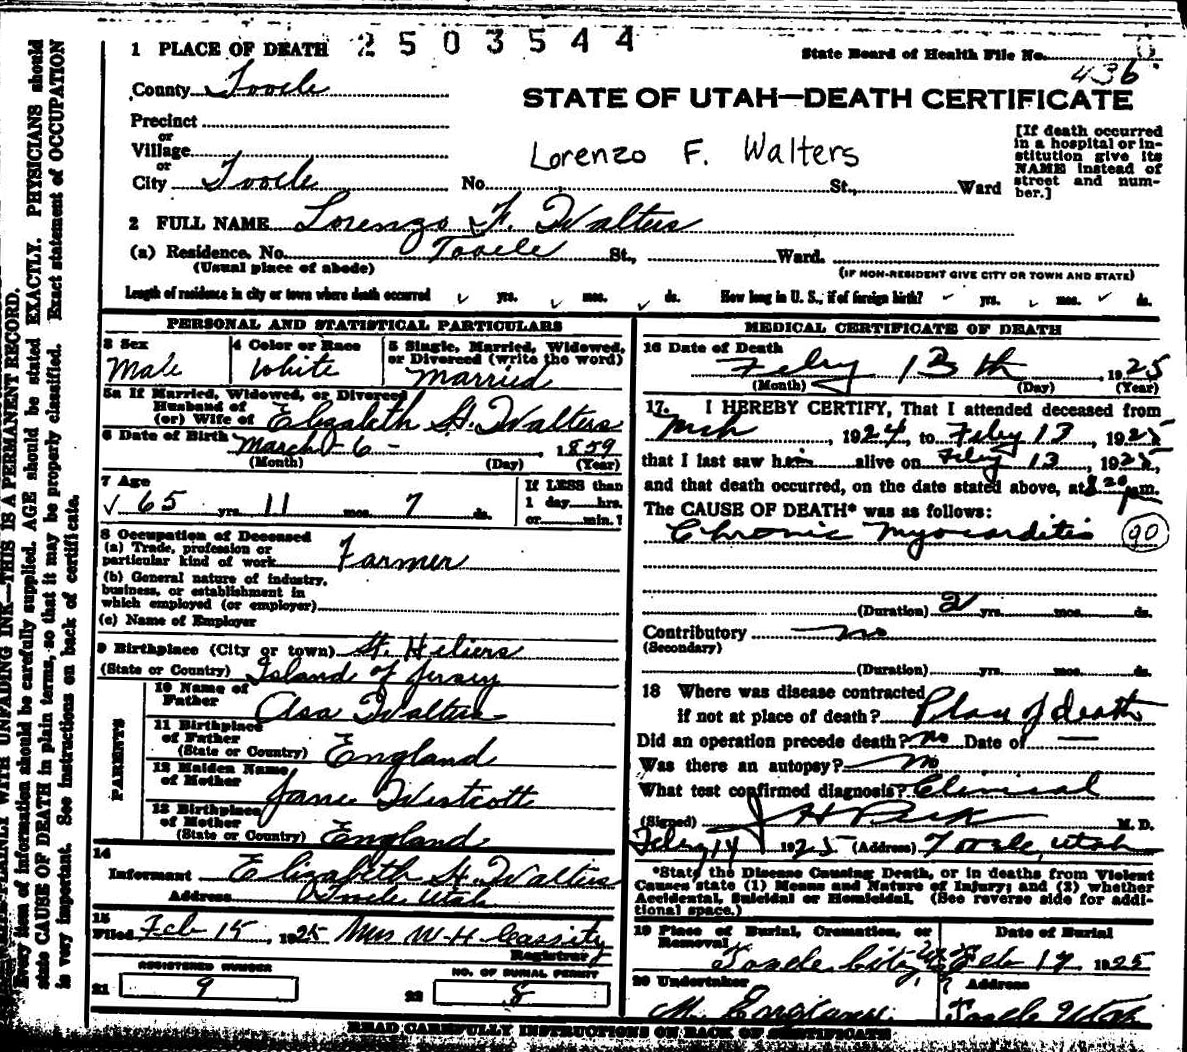 1 PLACE OF DEATH 2503544
State Board of Health File No.
436
County Tooele
STATE OF UTAH—DEATH CERTIFICATE
Precinct
or
Village
or
City Tooele No. St., Ward
Lorenzo F. Walters
[If death occurred
in a hospital or in-
stitution give its
NAME instead of
street and num-
ber.]
2 FULL NAME Lorenzo F. Walters
(a) Residence. No. Tooele St., Ward.
(Usual place of abode) (IF NON-RESIDENT GIVE CITY OR TOWN AND STATE)
Length of residence in city or town where death occurred yrs. mos. ds. How long in U. S., if of foreign birth? yrs. mos. ds.
PERSONAL AND STATISTICAL PARTICULARS
3 Sex 4 Color or Race 5 Single, Married, Widowed,
or Divorced (write the word)
Male White Married
5a If Married, Widowed, or Divorced
Husband of
(or) Wife of Elizabeth H. Walters
6 Date of Birth March - 6 - , 1859
(Month) (Day) (Year)
7 Age If LESS than
65 yrs. 11 mos. 7 ds. 1 day hrs.
or min.?
8 Occupation of Deceased
(a) Trade, profession or
particular kind of work Farmer
(b) General nature of industry,
business, or establishment in
which employed (or employer)
(c) Name of Employer
9 Birthplace (City or town) St. Heliers
(State or Country) Island of Jersey
PARENTS
10 Name of
Father Asa Walters
11 Birthplace
of Father
(State or Country) England
12 Maiden Name
of Mother Jane Westcott
13 Birthplace
of Mother
(State or Country) England
14
Informant Elizabeth H. Walters
Address Tooele Utah
15
Filed Feb 15, 1925 Mrs W H Cassity
Registrar
REGISTERED NUMBER NO. OF BURIAL PERMIT
21 9 22 8
MEDICAL CERTIFICATE OF DEATH
16 Date of Death
Feby 13th , 1925
(Month) (Day) (Year)
17. I HEREBY CERTIFY, That I attended deceased from
Mch , 1924, to Feby 13 , 1925
that I last saw him alive on Feby 13 , 1925,
and that death occurred, on the date stated above, at 8 20 pm.
The CAUSE OF DEATH* was as follows:
Chronic Myocarditis 90
(Duration) 2 yrs. mos. ds.
Contributory no
(Secondary)
(Duration) yrs. mos. ds.
18 Where was disease contracted
if not at place of death? Place of death
Did an operation precede death? no Date of —
Was there an autopsy? no
What test confirmed diagnosis? Clinical
(Signed) J H Peck M. D.
Feby 14 1925 (Address) Tooele, Utah
*State the Disease Causing Death, or in deaths from Violent
Causes state (1) Means and Nature of Injury; and (2) whether
Accidental, Suicidal or Homicidal. (See reverse side for addi-
tional space.)
19 Place of Burial, Cremation, or
Removal Date of Burial
Tooele City, Feb 17 1925
20 Undertaker Address
M. Tooele Utah
READ CAREFULLY INSTRUCTIONS ON BACK OF CERTIFICATE
WRITE PLAINLY WITH UNFADING INK—THIS IS A PERMANENT RECORD.
Every item of information should be carefully supplied. AGE should be stated EXACTLY. PHYSICIANS should
state CAUSE OF DEATH in plain terms, so that it may be properly classified. Exact statement of OCCUPATION
is very important. See instructions on back of certificate.